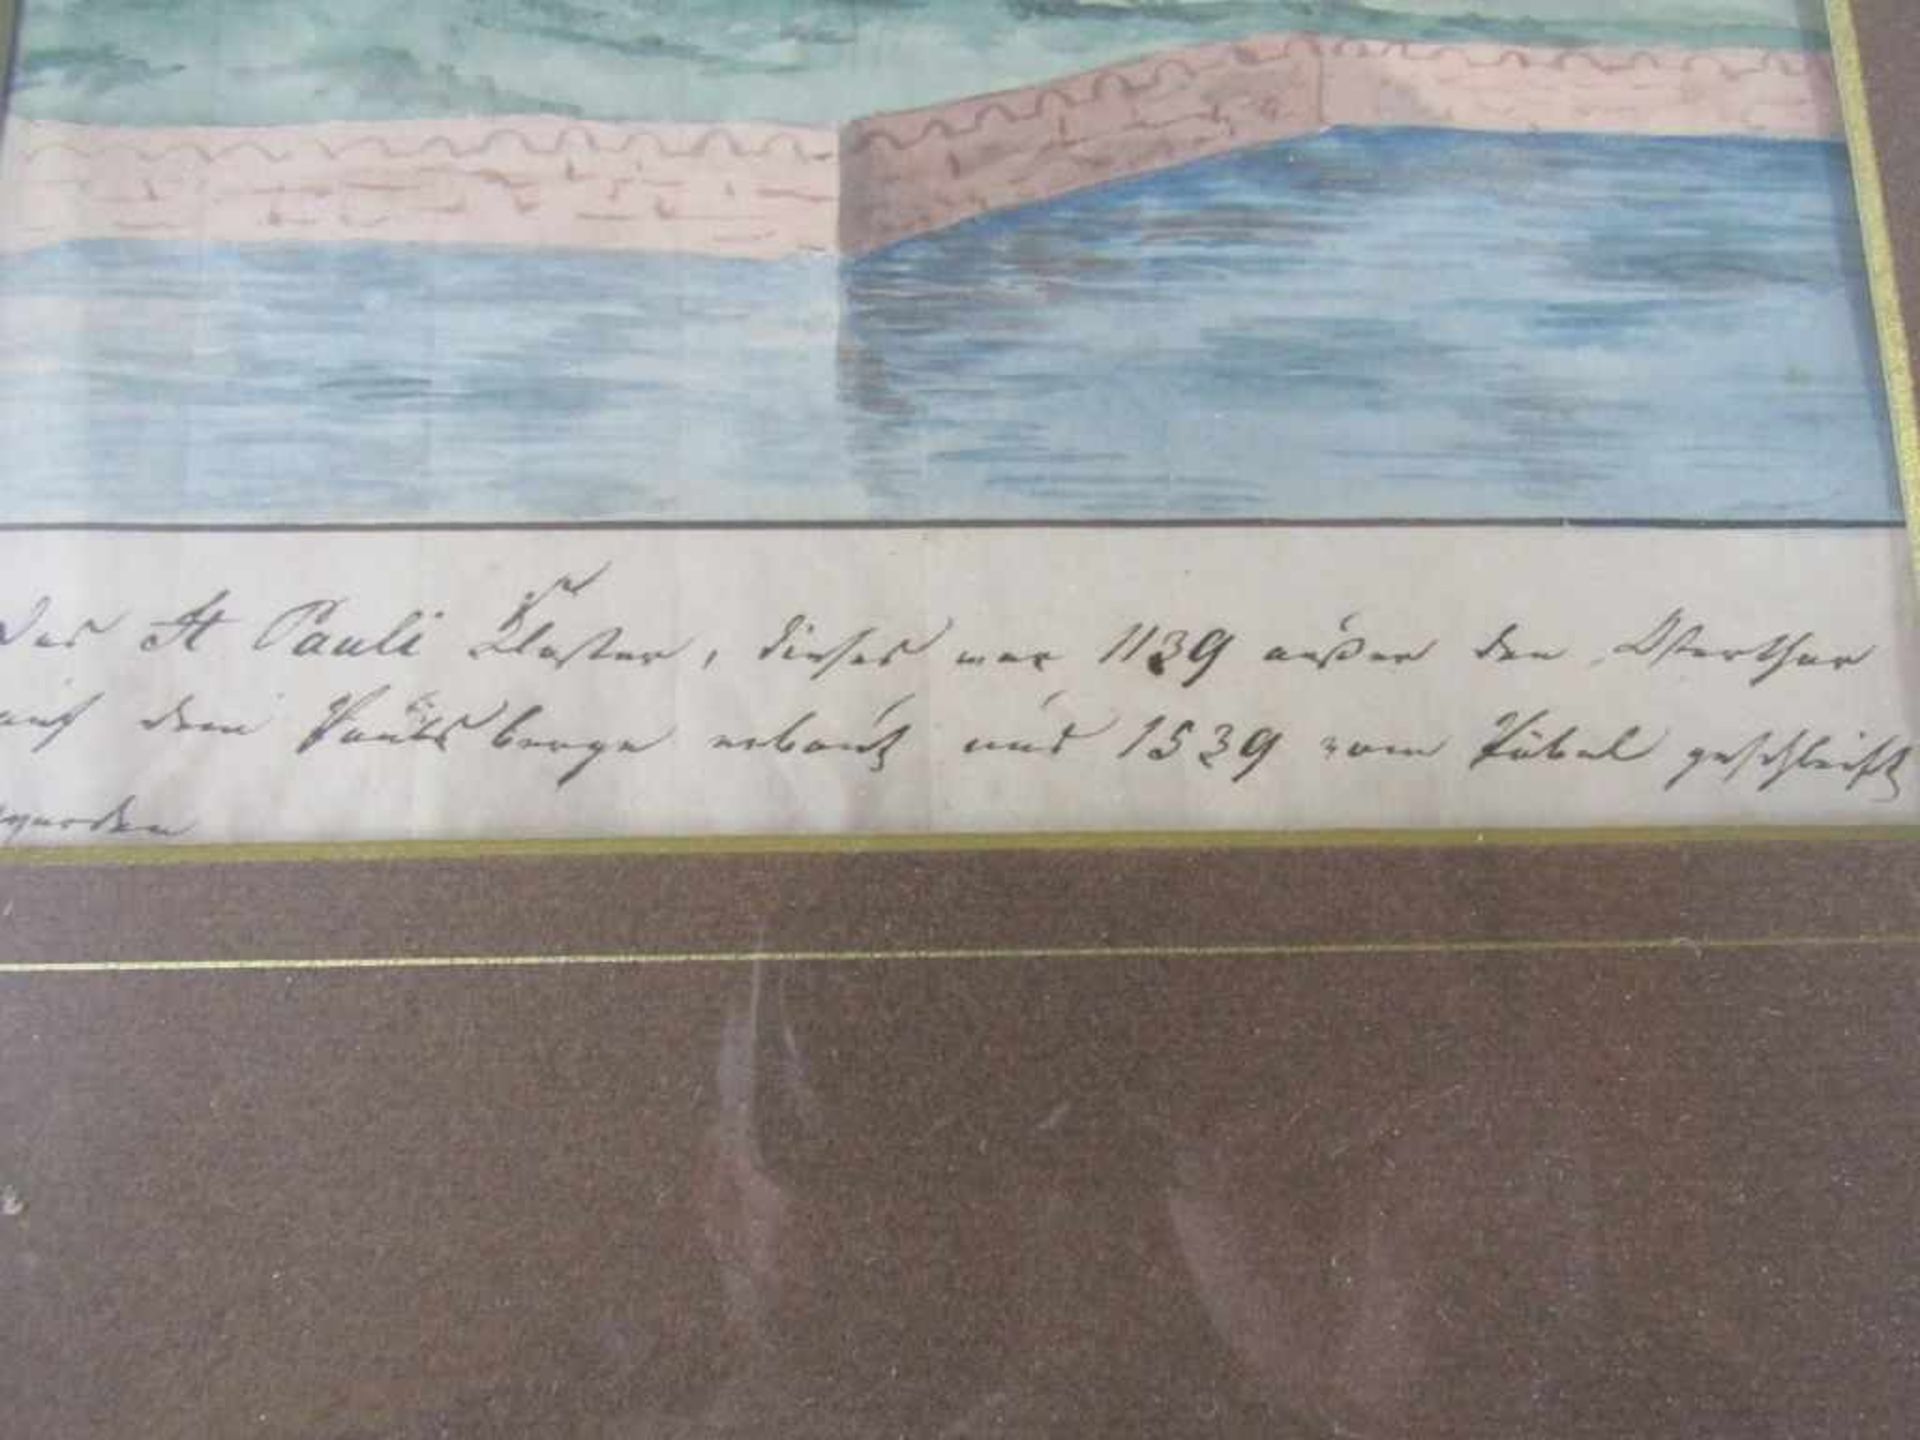 Das St Pauli Kloster, dieses war 1139 außer den Osterthor
auf dem Paulsberge erbaut und 1539 vom Pöbel geschleift
worden